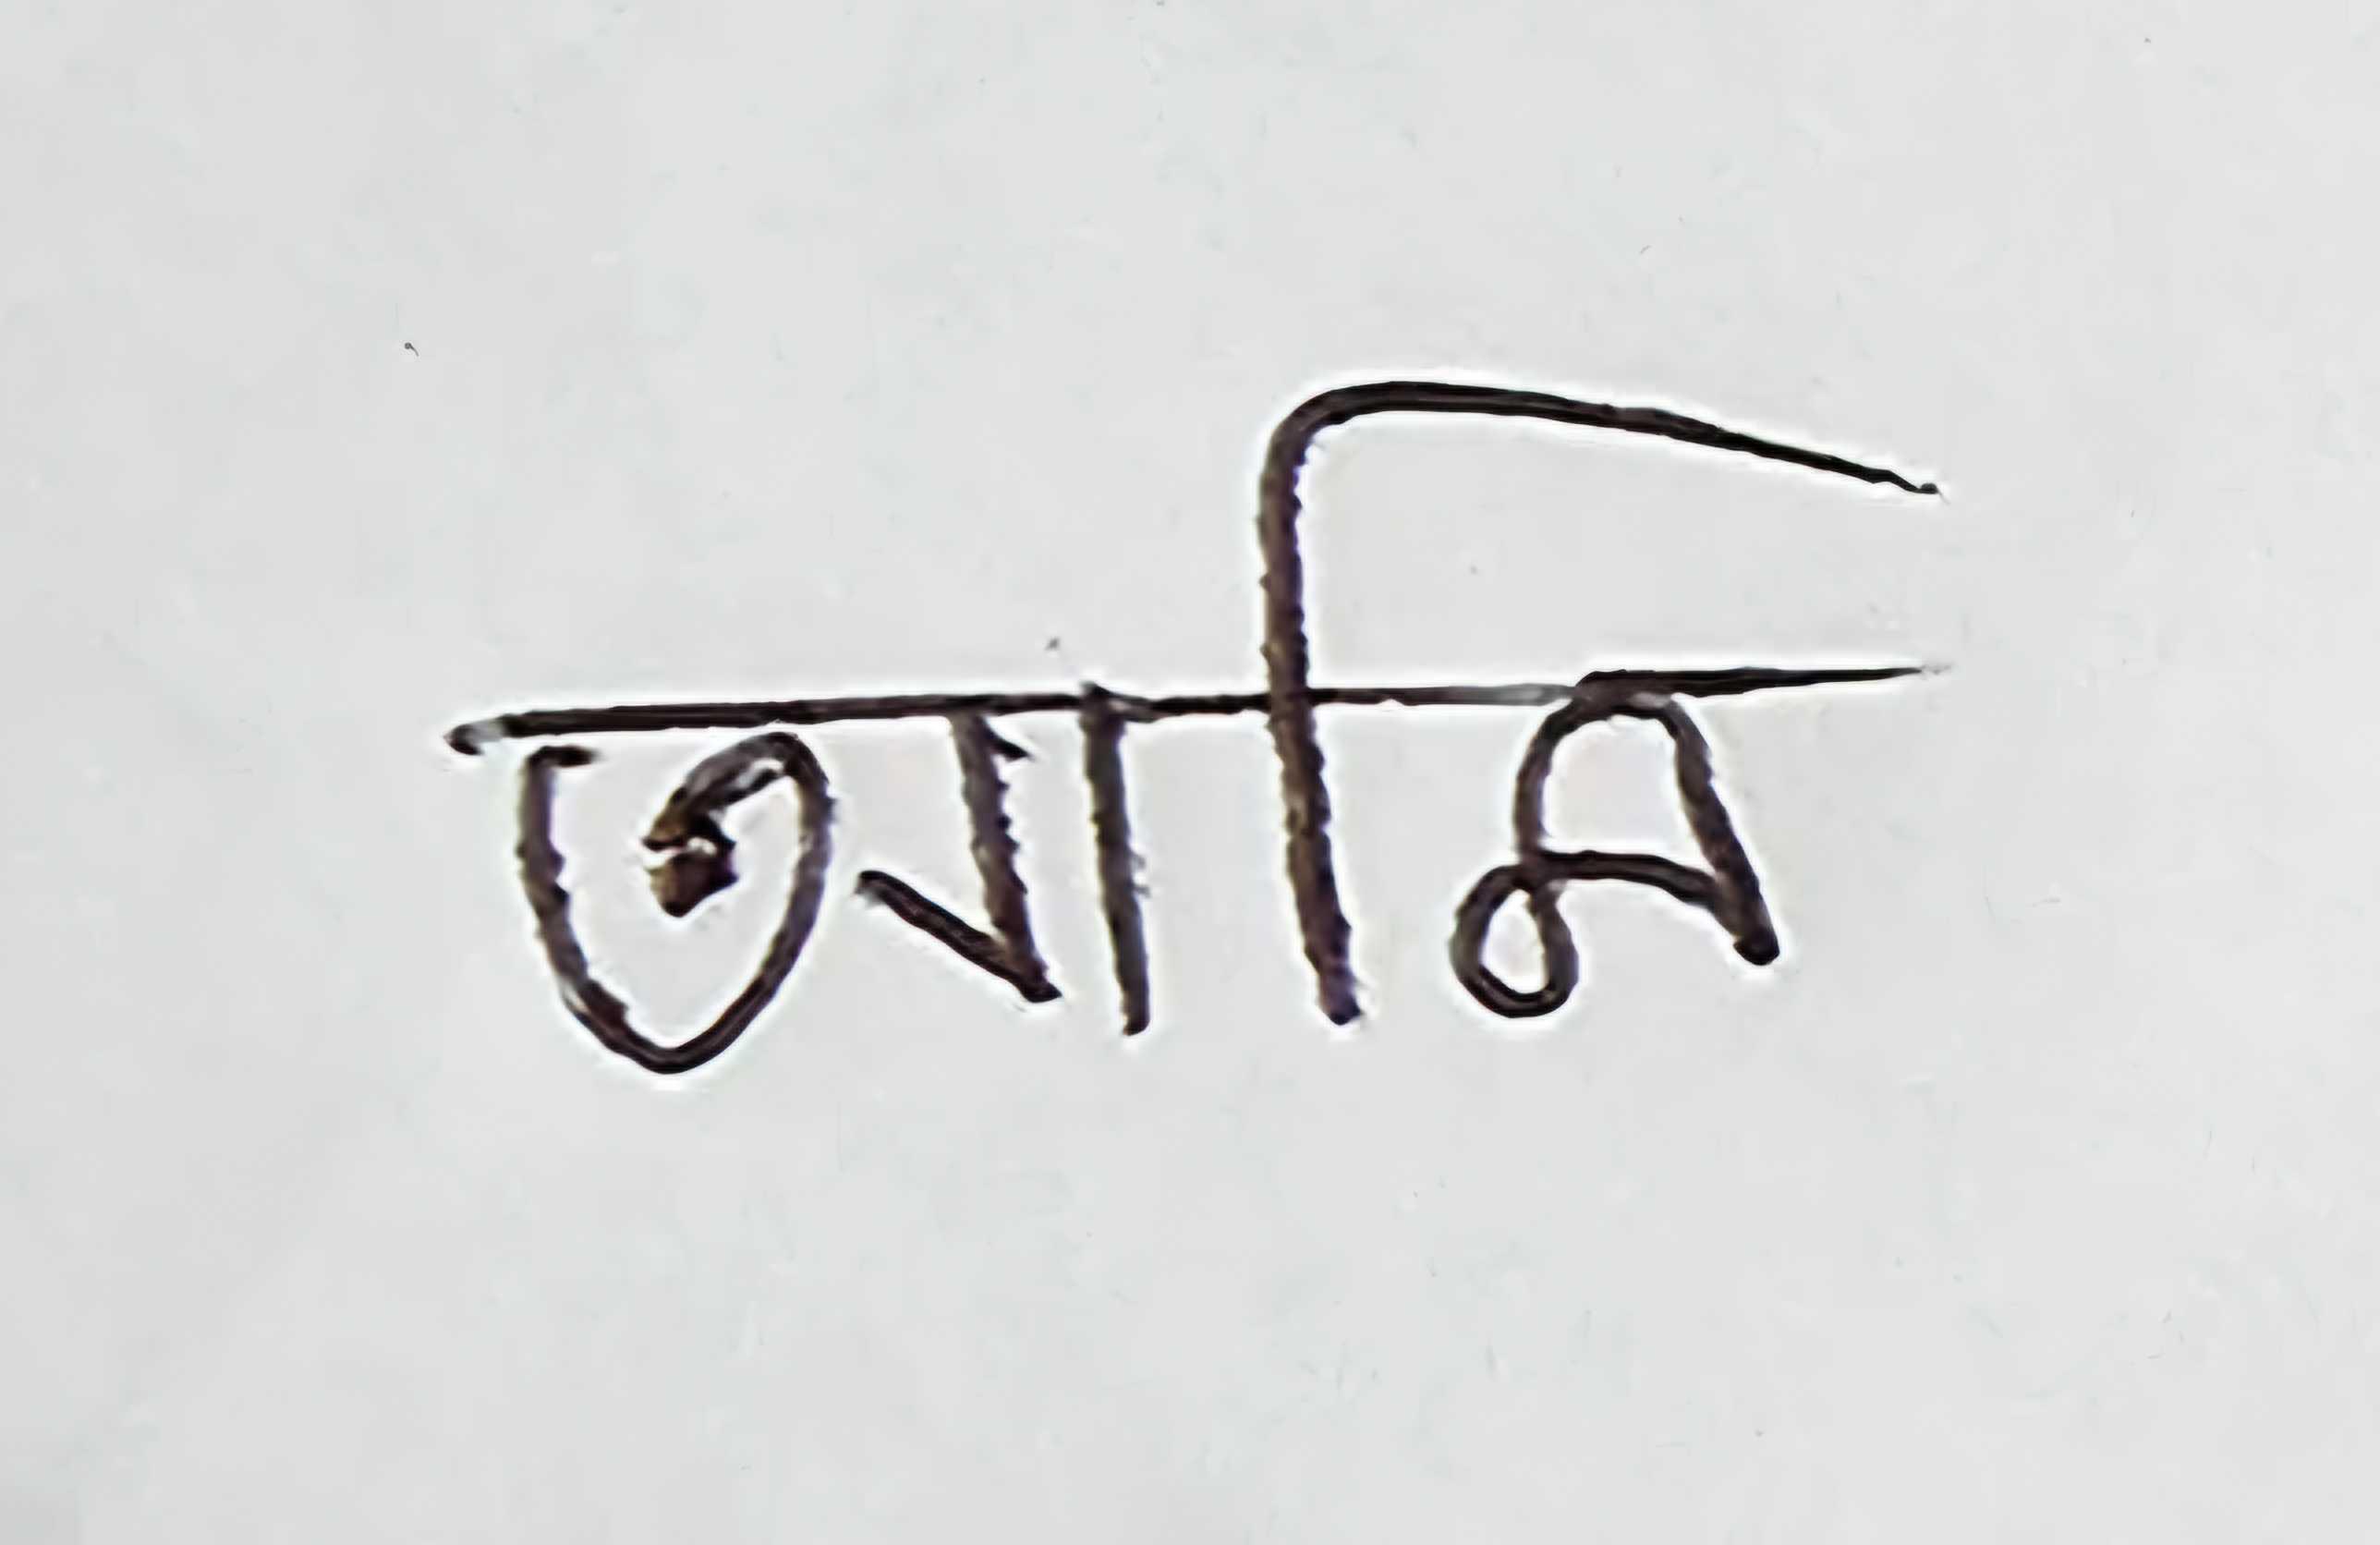 আমি